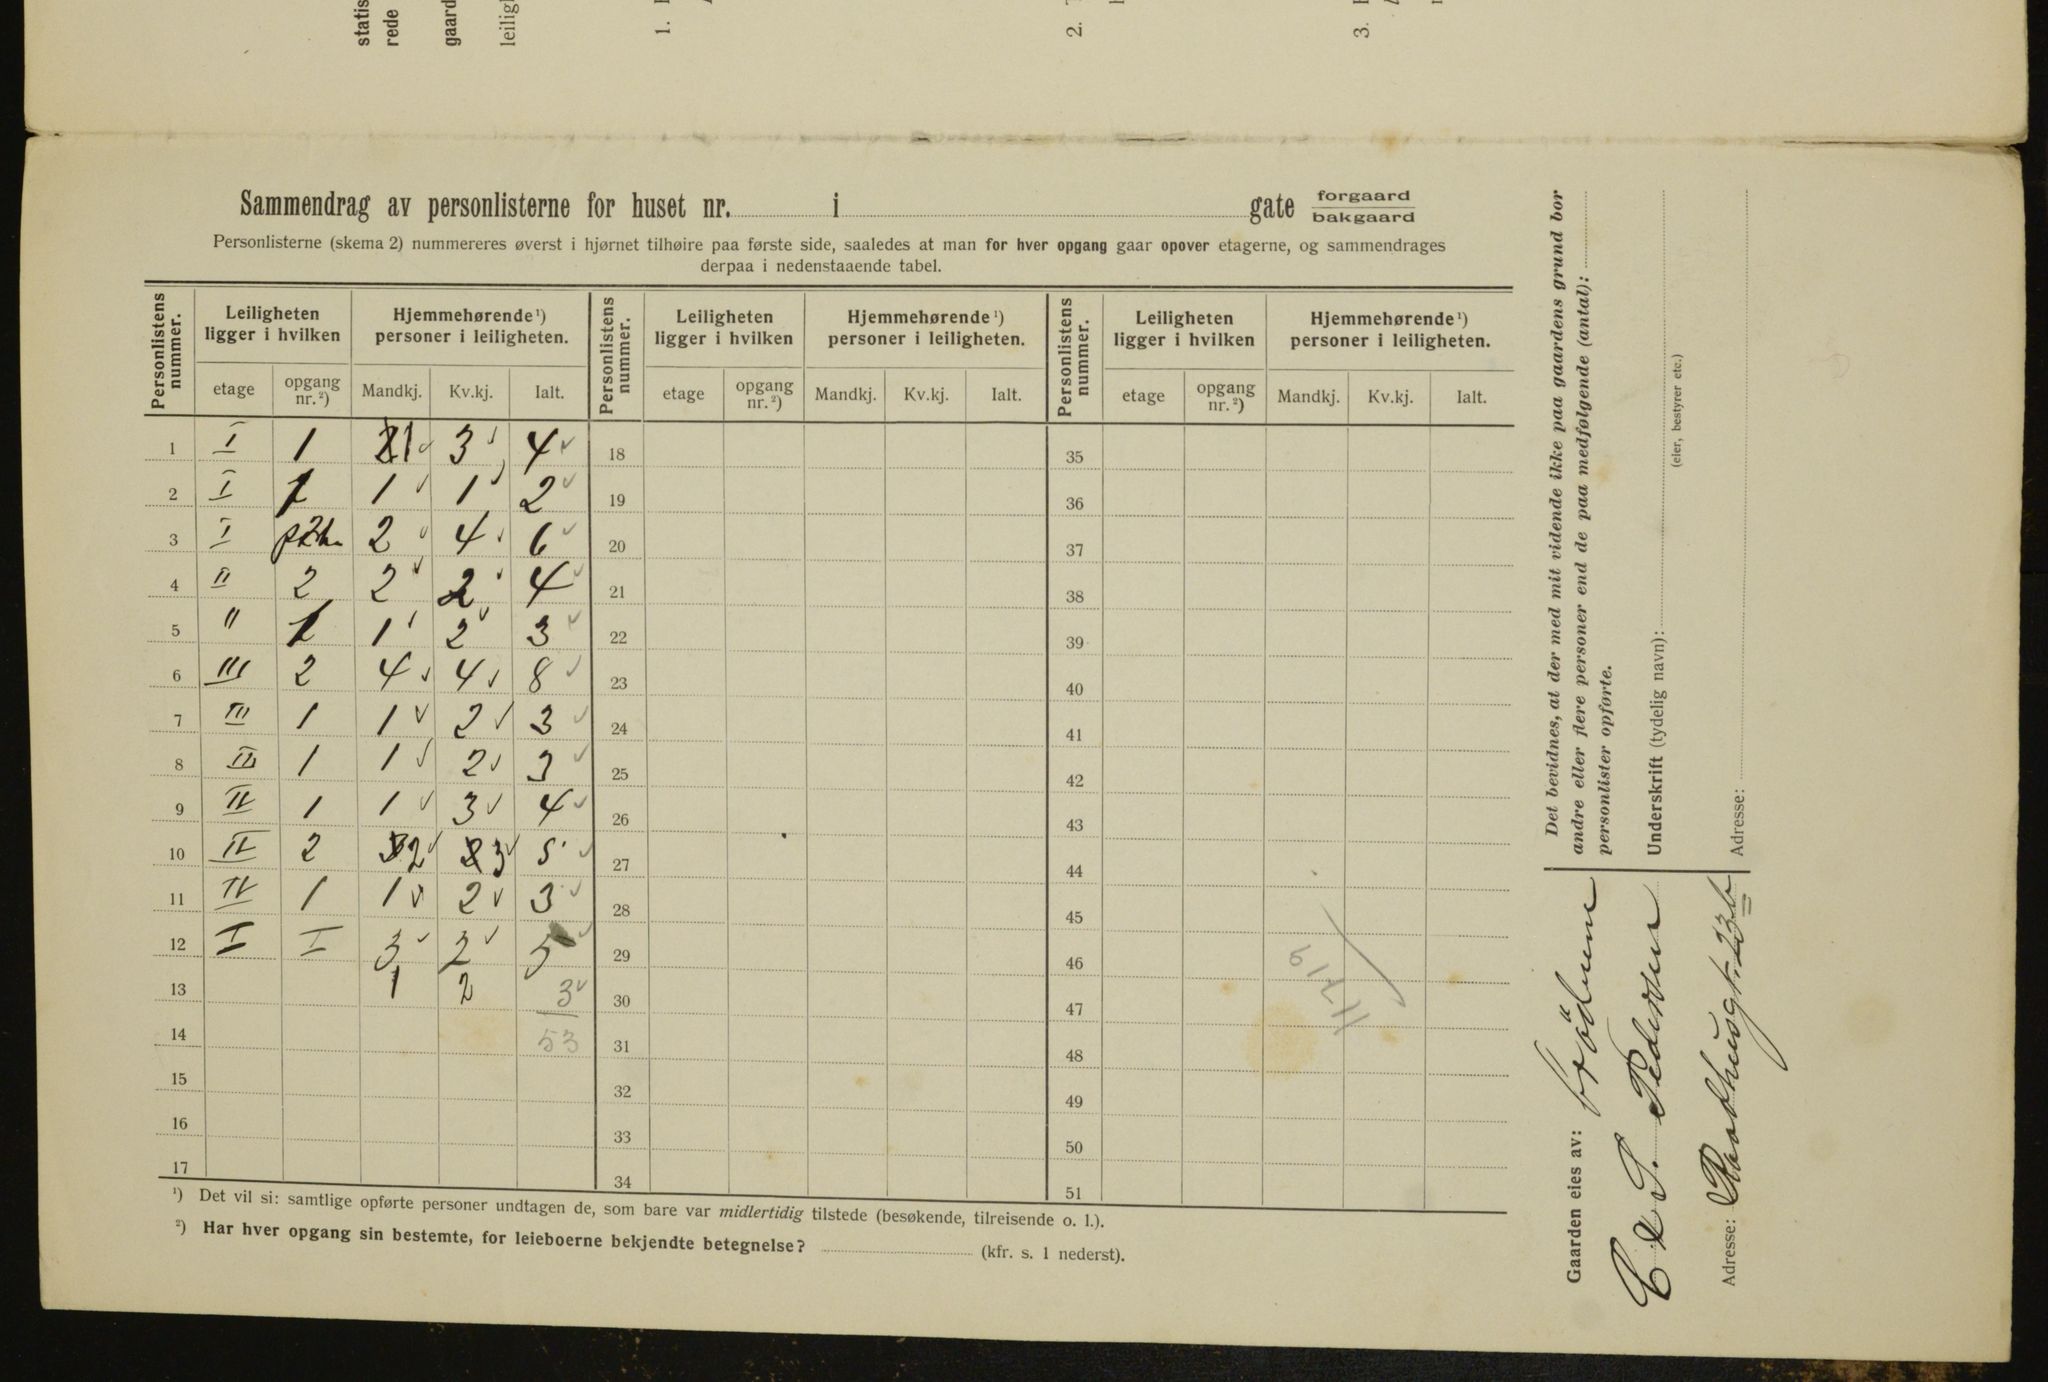 statis
rede
gaard
leilig
1.
2.
3.
Sammendrag av personlisterne for huset nr. i gate forgaard bakgaard
Personlisterne (skema 2) nummereres øverst i hjørnet tilhøire paa første side, saaledes at man for hver opgang gaar opover etagerne, og sammendrages
derpaa i nedenstaaende tabel.
Personlistens nummer. Leiligheten ligger i hvilken Hjemmehørende ¹) personer i leiligheten. Personlistens nummer. Leiligheten ligger i hvilken Hjemmehørende ¹) personer i leiligheten. Personlistens nummer. Leiligheten ligger i hvilken Hjemmehørende ¹) personer i leiligheten.
etage opgang nr. ²) Mandkj. Kv.kj. Ialt. etage opgang nr. ²) Mandkj. Kv.kj. Ialt. etage opgang nr. ²) Mandkj. Kv.kj. Ialt.
1 I 1 1 3 4 18 35
2 I 1 1 2 19 36
3 I 2 4 6 20 37
4 II 2 2 2 4 21 38
5 " 1 2 3 22 39
6 III 2 4 4 8 23 40
7 III 1 1 2 3 24 41
8 III 1 1 2 3 25 42
9 IV 1 1 3 4 26 43
10 IV 2 2 3 5 27 44
11 IV 1 1 2 3 28 45
12 I I 3 2 5 29 46
13 1 2 3 30 47
14 53 31 48
15 32 49
16 33 50
17 34 51
¹) Det vil si: samtlige opførte personer undtagen de, som bare var midlertidig tilstede (besøkende, tilreisende o. l.).
²) Har hver opgang sin bestemte, for leieboerne bekjendte betegnelse? (kfr. s. 1 nederst).
Det bevidnes, at der med mit vidende ikke paa gaardens grund bor
andre eller flere personer end de paa medfølgende (antal):
personlister opførte.
Underskrift (tydelig navn):
(eier, bestyrer etc.)
Adresse:
Gaarden eies av:
Pedersen
Adresse: Raadhusgt. 23b